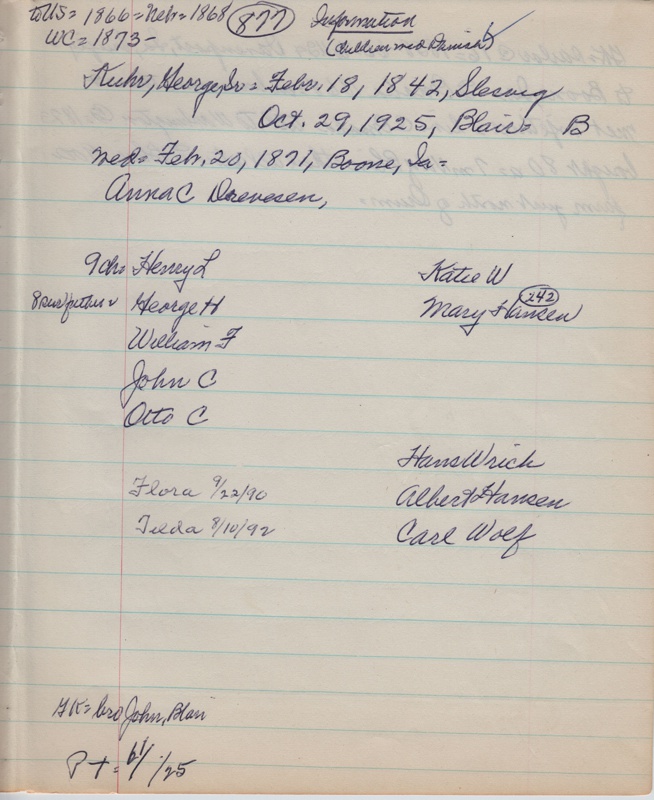 to US = 1866 = Neb = 1868 877 Information
WC = 1873 - (children med Danish)
Kuhr, George, Sr. = Febr. 18, 1842, Slesvig
Oct. 29, 1925, Blair = B
med = Feb. 20, 1871, Boone, Ia =
Anna C
9ch = Henry L Katie W
8 surv father = George H Mary Hansen 242
William F
John C
Otto C
Hans Wrich
Flora 9/22/90 Albert Hansen
Tilda 8/10/92 Carl Wolf
GK = bro John, Blair
P T = /1/25